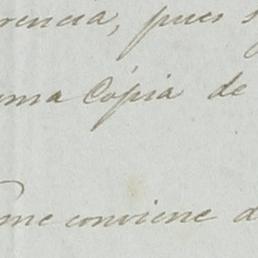 rencia, pues s
una Cópia de
me conviene d